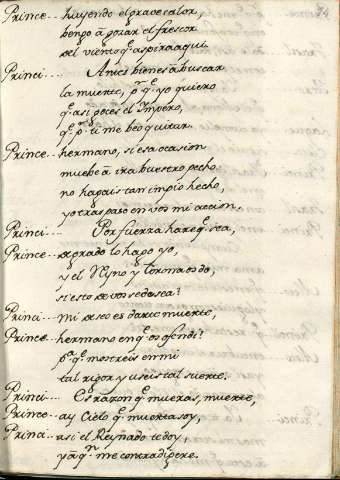 Prince... huyendo el grave calor,
bengo â gozar el frescor
del viento q.e aspira aqui.
Princi... Antes bienes â buscar
la muerte, p.r q.e yo quiero
q.e asi goces el Ymperio,
q.e p.r ti me beo quitar.
Prince... hermano, si esa ocasion
muebe â ira buestro pecho
no hagais tan impio hecho,
yo traspaso en vos mi accion.
Princi... Por fuerza hare q.e sea,
Prince... de grado lo hago yo,
y el Reyno y Corona os do,
si esto de vos se desea?
Princi... mi deseo es darte muerte,
Prince... hermano en q.e os ofendi?
p.r q.e mostreis en mi
tal rigor y useis tal suerte.
Princi... Es razon q.e mueras, muerete,
Prince... ay Cielo q.e muerto soy,
Princi... asi el Reynado te doy,
y â q.n me contradigere.